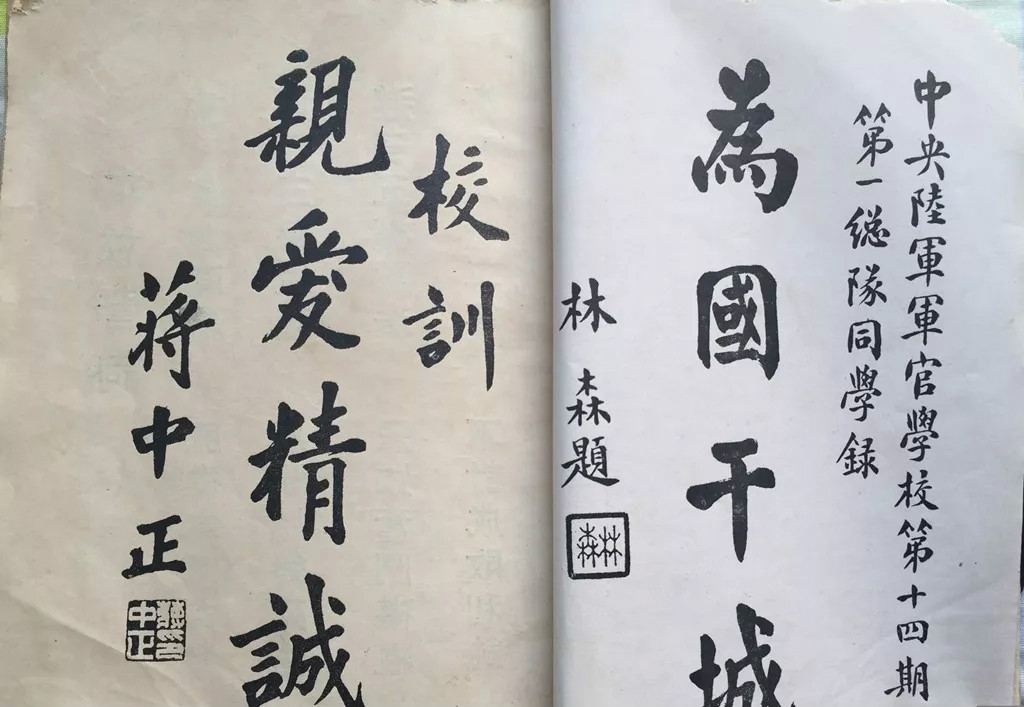 中央陸軍軍官學校第十四期
第一總隊同學録
為國干城
林森題
林森
校訓
親愛精誠
蔣中正
蔣中正印